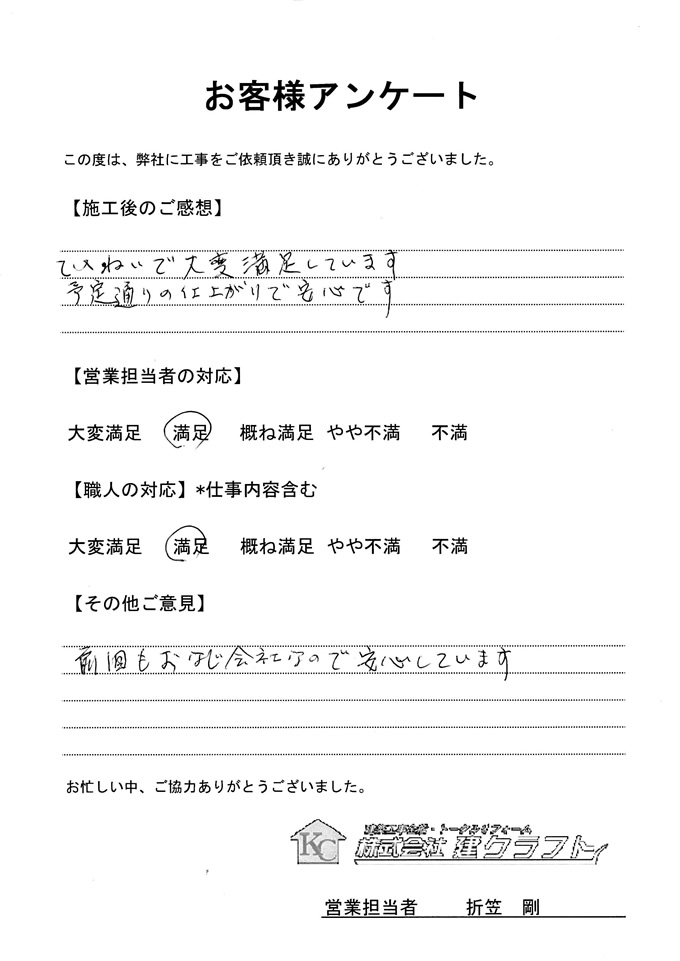 お客様アンケート
この度は、弊社に工事をご依頼頂き誠にありがとうございました。
【施工後のご感想】
ていねいで大変満足しています
予定通りの仕上がりで安心です
【営業担当者の対応】
大変満足 満足 概ね満足 やや不満 不満
【職人の対応】*仕事内容含む
大変満足 満足 概ね満足 やや不満 不満
【その他ご意見】
前回もおなじ会社なので安心しています
お忙しい中、ご協力ありがとうございました。
KC
建築工事全般・トータルリフォーム
株式会社 建クラフト
営業担当者 折笠 剛